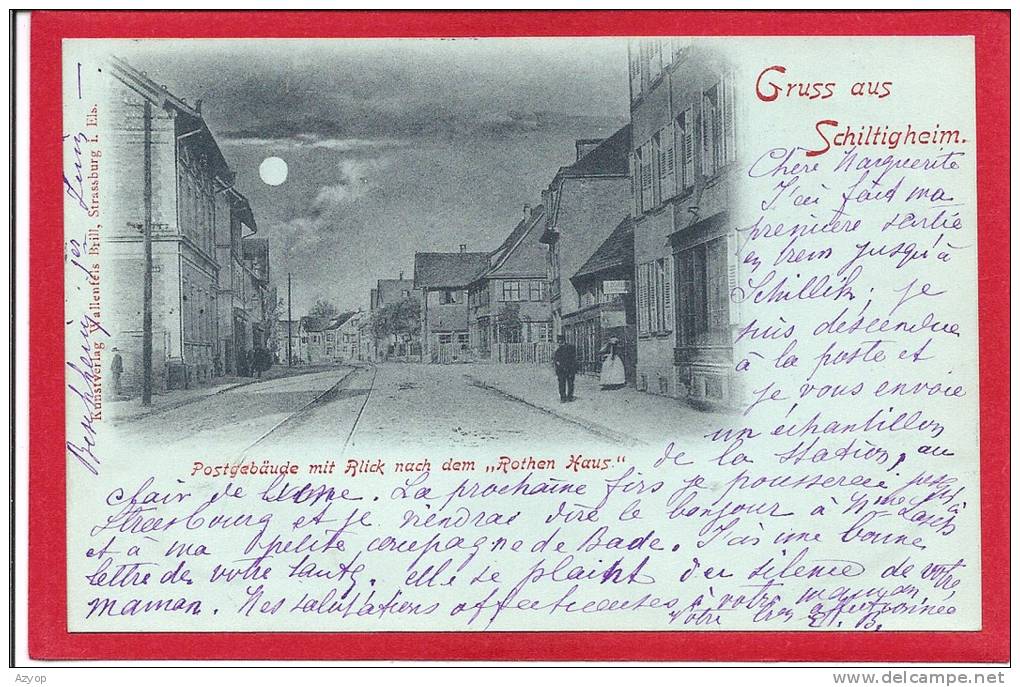 Gruss aus
Schiltigheim.
Chère Marguerite
J'ai fait ma
première sortie
en trem jusqu'à
Schillik, je
suis descendue
à la poste et
je vous envoie
un échantillon
de la station, au
clair de lune. La prochaine fois je pousserai jusqu'à
Strasbourg et je viendrai dire le bonjour à Mme
et à ma petite compagne de Bade. J'ai une bonne
lettre de votre tante, elle se plaint du silence de votre
maman. Mes salutations affectueuses à votre maman
Votre très affectionnée
E. B.
Postgebäude mit Blick nach dem „Rothen Haus."
Kunstverlag Wallenfels Brill, Strassburg i. Els.
1er Juin
Azyop
www.delcampe.net